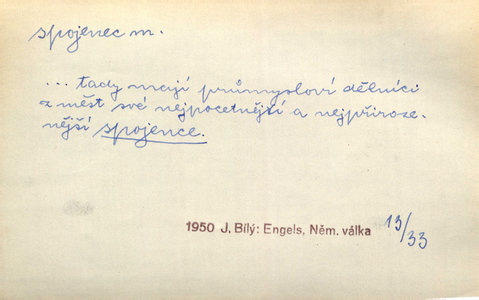 spojenec m.
... tady mají průmysloví dělníci
z měst své nejpočetnější a nejpřiroze-
nější spojence.
1950 J. Bílý: Engels, Něm. válka 13/33